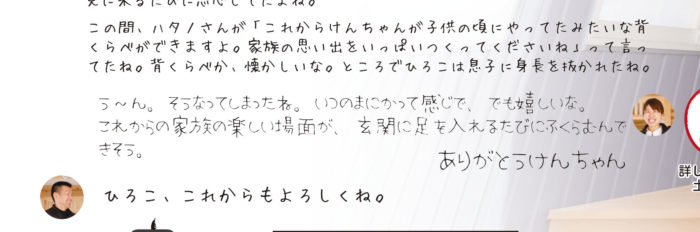 この間、ハタノさんが「これからけんちゃんが子供の頃にやってたみたいな背
くらべができますよ。家族の思い出をいっぱいつくってくださいね」って言っ
てたね。背くらべか、懐かしいな。ところでひろこは息子に身長を抜かれたね。
う〜ん。そうなってしまったね。いつのまにかって感じで、でも嬉しいな。
これからの家族の楽しい場面が、玄関に足を入れるたびにふくらむんで
きそう。
ありがとうけんちゃん
ひろこ、これからもよろしくね。
詳し